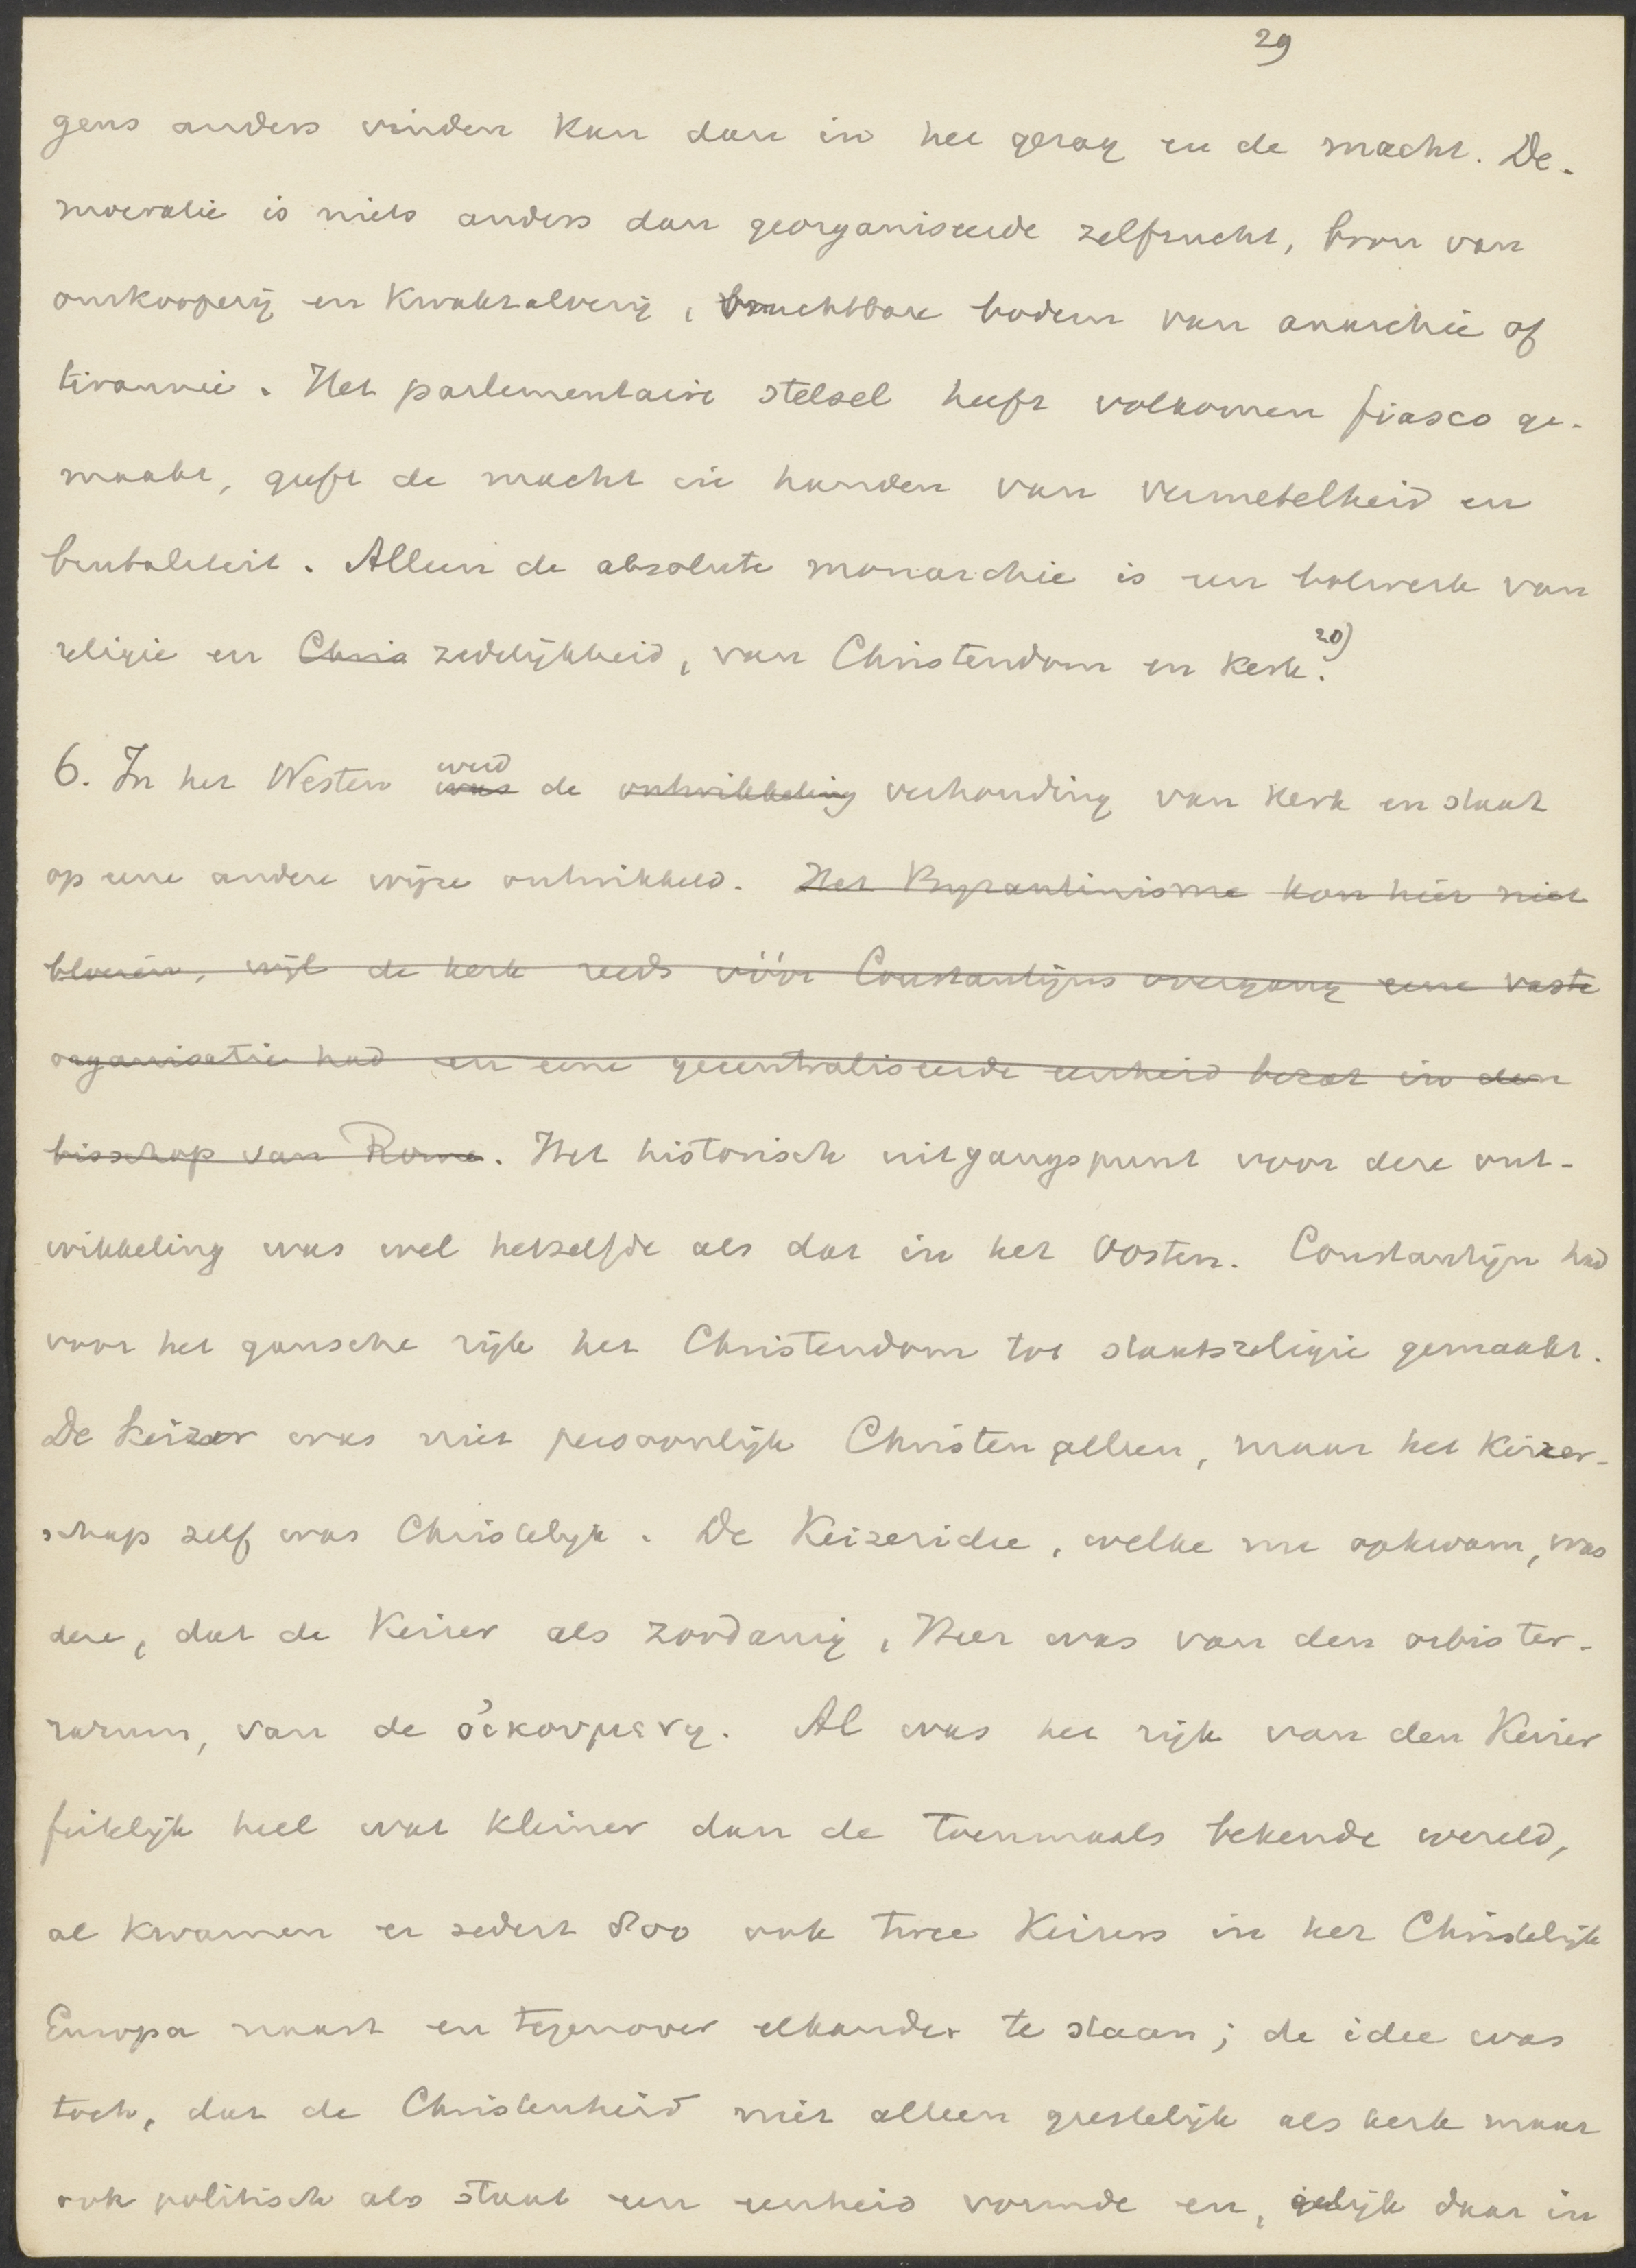 29
gens anders vinden kan dan in het gezag en de macht. De-
mocratie is niets anders dan georganiseerde zelfzucht, bron van
omkooperij en kwakzalverij, vruchtbare bodem van anarchie of
tirannie. Het parlementaire stelsel heeft volkomen fiasco ge-
maakt, geeft de macht in handen van vermetelheid en
brutaliteit. Alleen de absolute monarchie is een bolwerk van
religie en Chris zedelijkheid, van Christendom en kerk. 20)
6. In het Westen was werd de ontwikkeling verhouding van kerk en staat
op eene andere wijze ontwikkeld. Het Byzantinisme kon hier niet
bloeien, wijl de kerk reeds vóór Constantijns overgang eene vaste
organisatie had en eene gecentraliseerde eenheid bezat in den
bisschop van Rome. Het historisch uitgangspunt voor deze ont-
wikkeling was wel hetzelfde als dat in het Oosten. Constantijn had
voor het gansche rijk het Christendom tot staatsreligie gemaakt.
De keizer was niet persoonlijk Christen alleen, maar het keizer-
schap zelf was Christelijk. De Keizeridee, welke nu opkwam, was
deze, dat de Keizer als zoodanig, Heer was van den orbis ter-
rarum, van de οἰκουμενη. Al was het rijk van den Keizer
feitelijk heel wat kleiner dan de toenmaals bekende wereld,
al kwamen er sedert 800 ook twee Keizers in het Christelijk
Europa naast en tegenover elkander te staan; de idee was
toch, dat de Christenheid niet alleen geestelijk als kerk maar
ook politisch als staat een eenheid vormde en, gelijk daar in